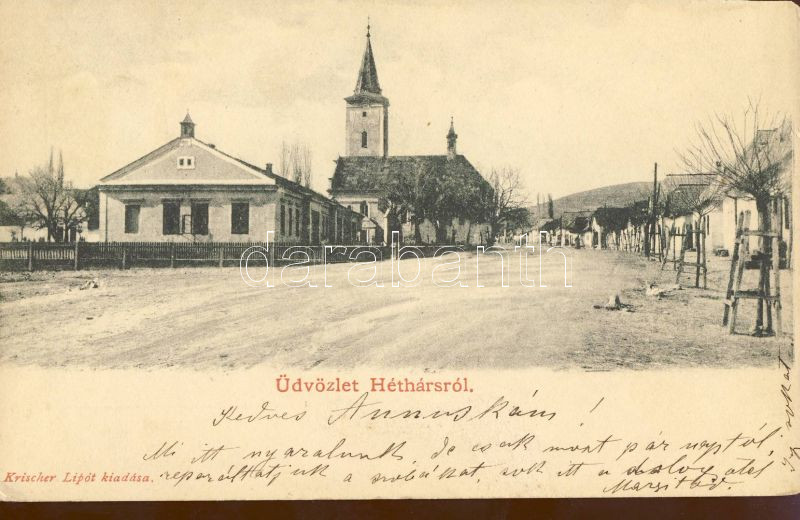 darabanth
Üdvözlet Héthársról.
Kedves Annuskám!
Mi itt nyaralunk, de csak most pár naptól,
reparáltatjuk a szobákat, sok itt a dolog
Krischer Lipót kiadása.